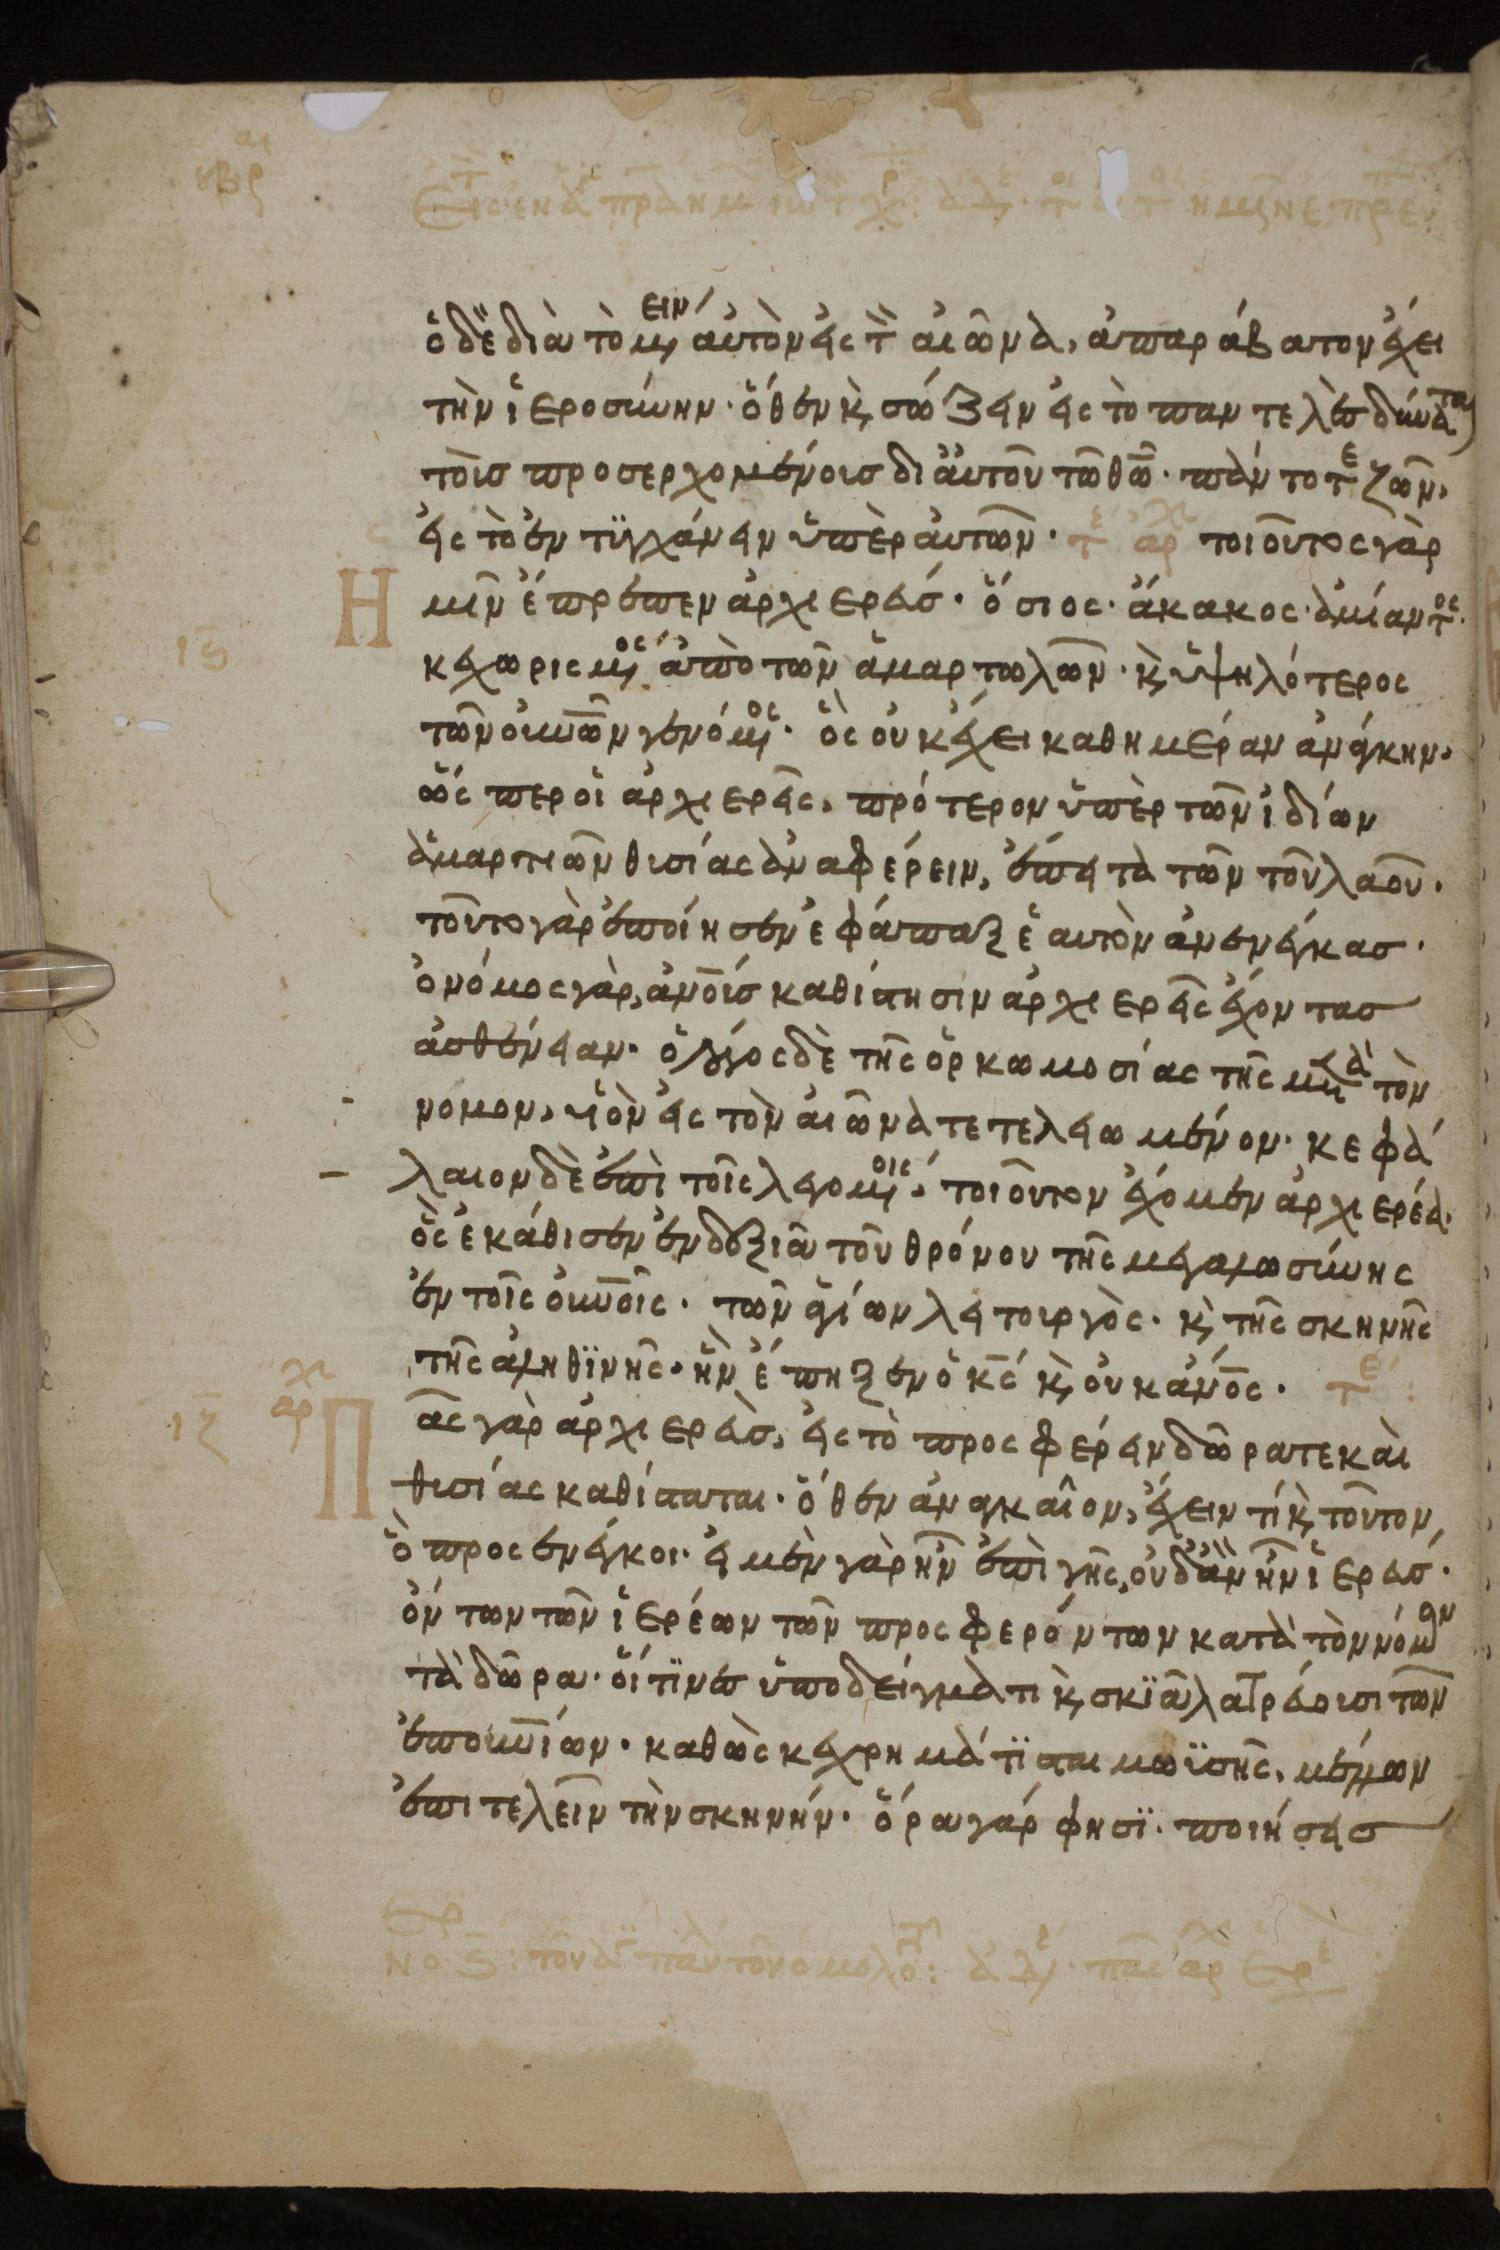 ὁ δὲ διὰ τὸ μένειν αὐτὸν εἰς τὸν αἰῶνα, ἀπαράβατον ἔχει
τὴν ἱεροσύνην· ὅθεν καὶ σώζειν εἰς τὸ παντελὲς δύναται
τοῖς προσερχομένοις δι αὐτοῦ τῷ θῶ· πάντοτε ζῶν,
εἰς τὸ ἐντϋγχάνειν ὑπὲρ αὐτῶν· τε αρχ τοιοῦτος γὰρ
Η
ιϛ
μῖν ἔπρεπεν ἀρχιερεύς· ὅσιος· ἄκακος· ἀμίαντος·
κεχωρισμένος ἀπὸ τῶν ἁμαρτωλῶν· καὶ ὑψηλότερος
τῶν οὐνῶν γενόμενος· ὃς οὐκ ἔχει καθημέραν ἀνάγκην,
ὥσπερ οἱ ἀρχιερεῖς, πρότερον ὑπὲρ τῶν ἰδίων
ἁμαρτιῶν θυσίας ἀναφέρειν, ἔπειτα τῶν τοῦ λαοῦ·
τοῦτο γὰρ ἐποίησεν ἐφάπαξ ἑαυτὸν ἀνενέγκας·
ὁ νόμος γὰρ, ἀνους καθίστησιν ἀρχιερεῖς ἔχοντας
ἀσθένειαν· ὁ λόγος δὲ τῆς ὁρκωμοσίας τῆς μετὰ τὸν
νομον, υἱὸν εἰς τὸν αἰῶνα τετελειωμένον· κεφά
λαιον δὲ ἐπὶ τοῖς λεγομένοις, τοιοῦτον ἔχομεν ἀρχιερέα·
ὃς ἐκάθισεν ἐν δεξιᾶ τοῦ θρόνου τῆς μεγαλωσύνης
ἐν τοῖς οὐνοῖς· τῶν ἁγίων λειτουργὸς· καὶ τῆς σκηνῆς
τῆς ἀληθϊνῆς· ἣν ἔπηξεν ὁ κς καὶ οὐκ ἀνος· τε:
ιζ αρχ Π
ᾶς γὰρ ἀρχιερεὺς, εἰς τὸ προσφέρειν δῶρα τε καὶ
θυσίας καθίσταται· ὅθεν ἀναγκαῖον, ἔχειν τί καὶ τοῦτον,
ὃ προσενέγκοι· εἰ μὲν γὰρ ἦν ἐπὶ γῆς, οὐδ ἂν ἦν ἱερεύς·
ὄντων τῶν ἱερέων τῶν προσφερόντων κατὰ τὸν νόμον
τὰ δῶρα· οἵτϊνες ὑποδείγματι καὶ σκϊᾶ λατρεύουσι τῶν
ἐπουνίων· καθὼς κεχρημάτϊσται μωϋσῆς, μέλλων
ἐπιτελεῖν τὴν σκηνήν· ὅρα γάρ φησϊ· ποιήσεις